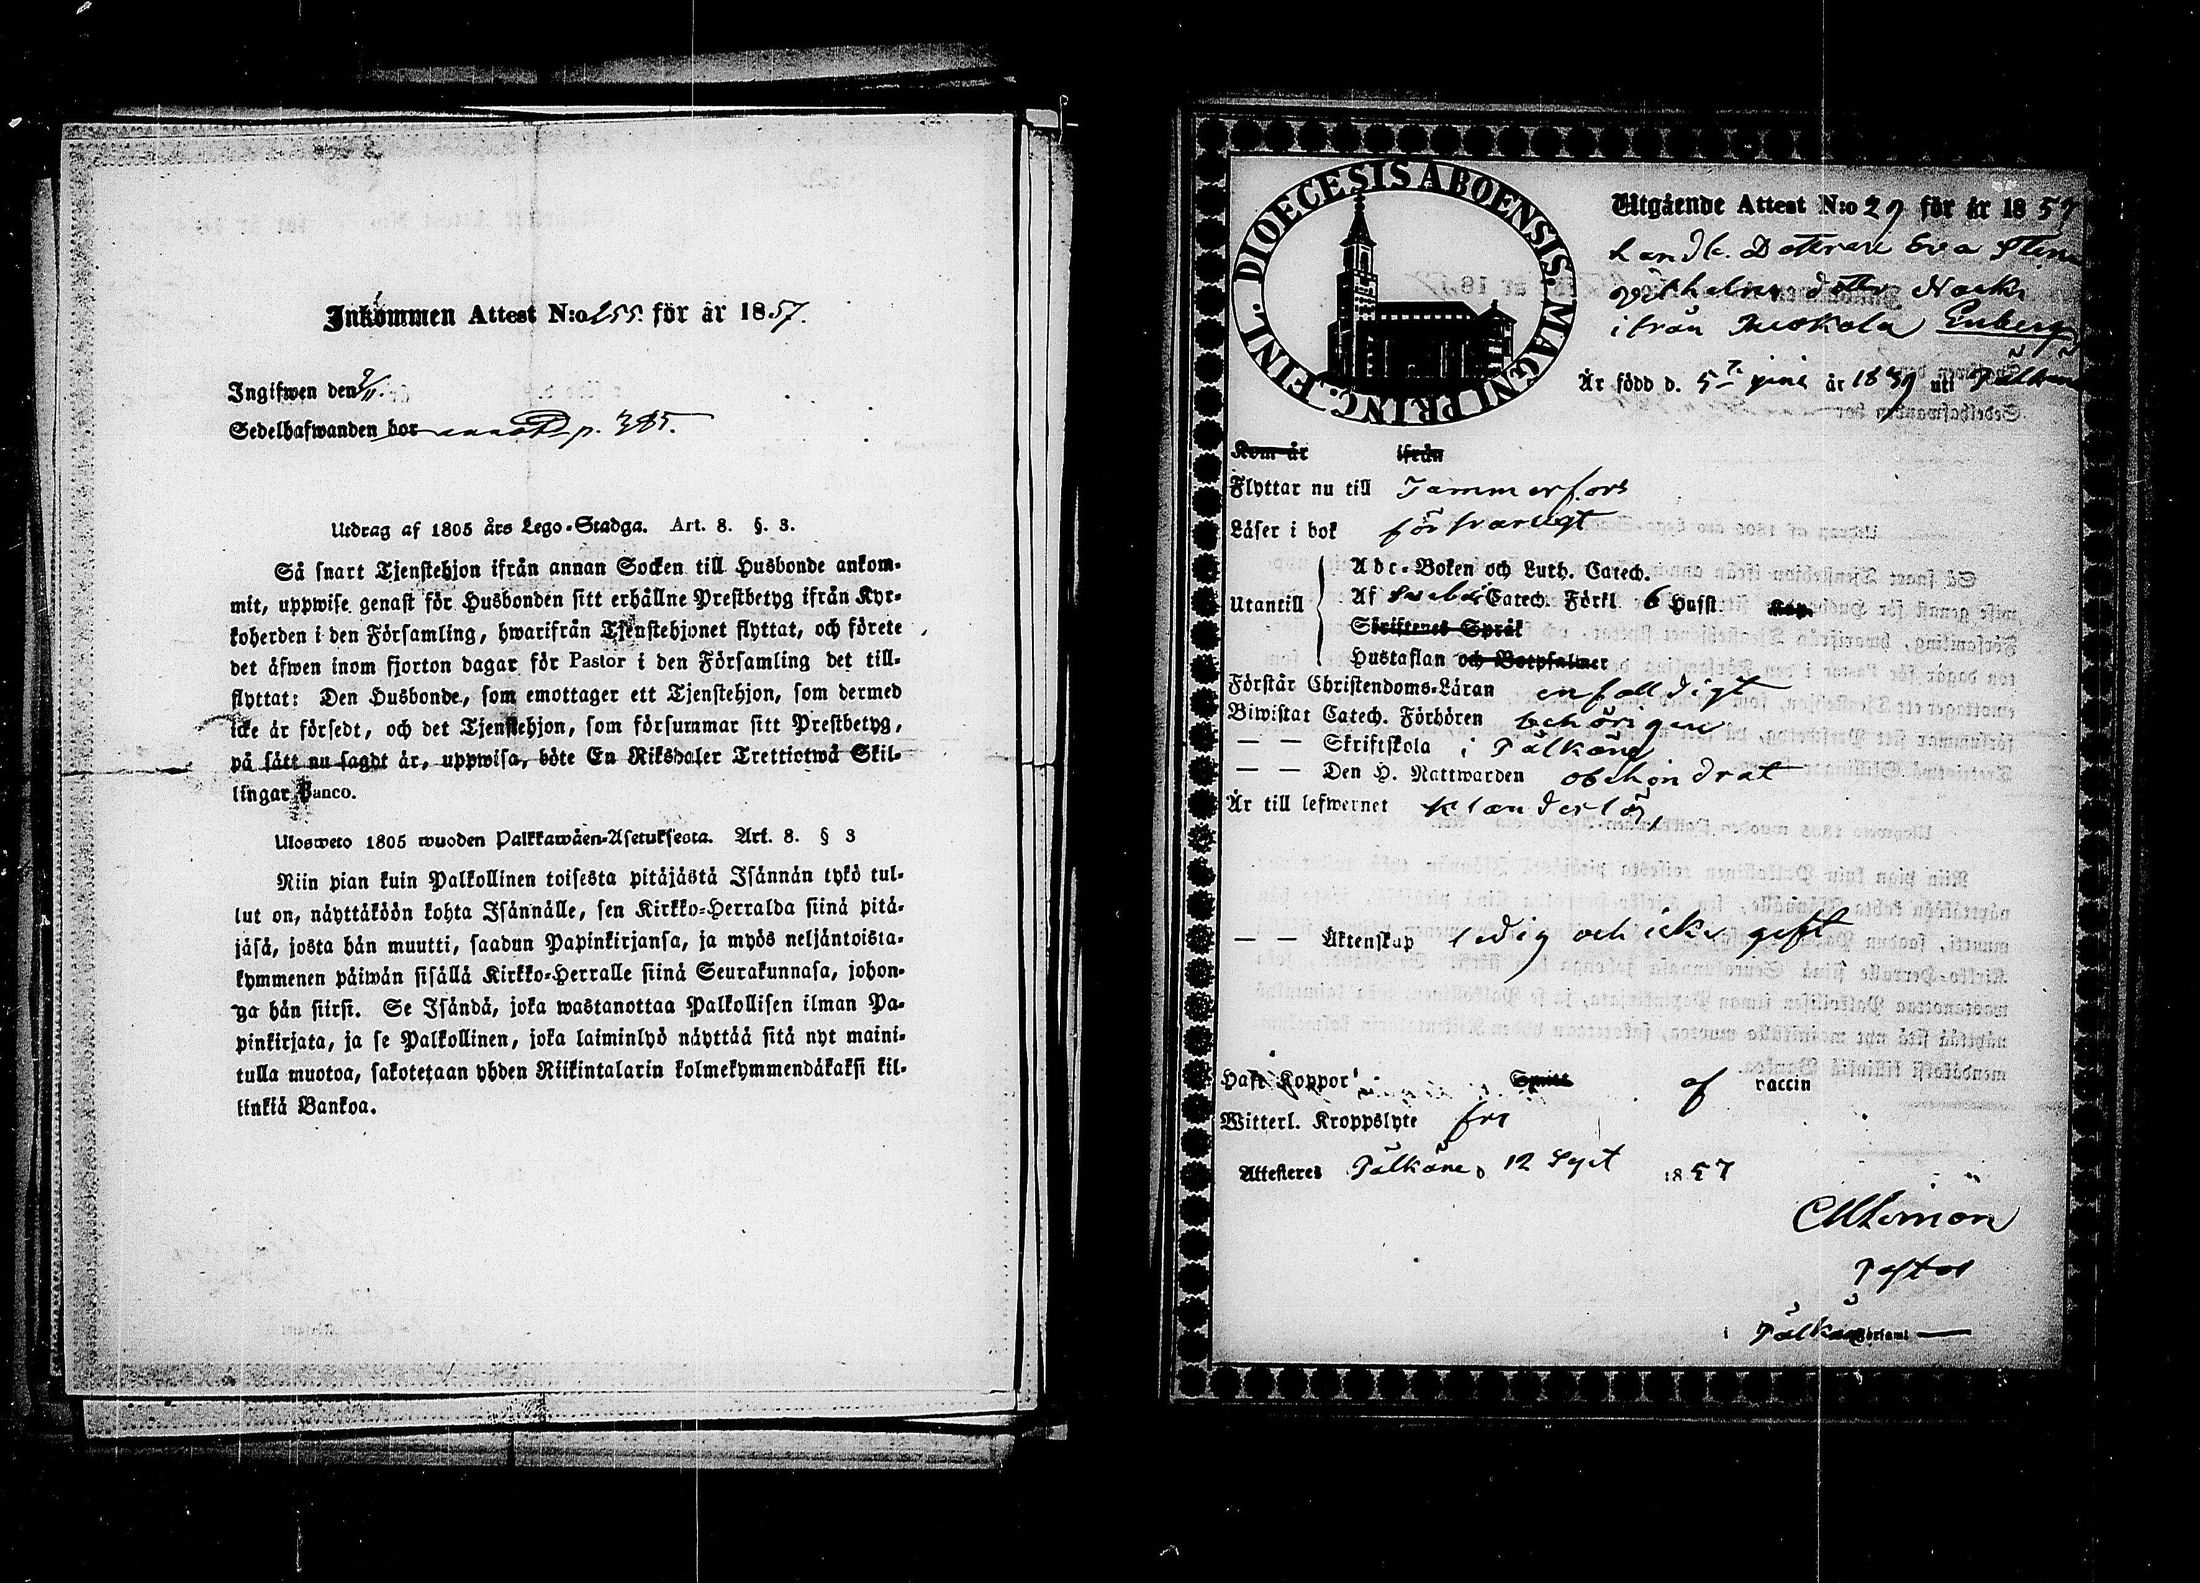 Inkommen Attest N:o 255. för år 1857.
Ingifwen den 9/11.
Sedelhafwanden bor annot. p. 385.
Utdrag af 1805 års Lego-Stadga. Art. 8. §. 3.
Så snart Tjenstehjon ifrån annan Socken till Husbonde ankom-
mit, uppwise genast för Husbonden sitt erhållne Prestbetyg ifrån Kyr-
koherden i den Församling, hwarifrån Tjenstehjonet flyttat, och förete
det äfwen inom fjorton dagar för Pastor i den Församling det till-
flyttat: Den Husbonde, som emottager ett Tjenstehjon, som dermed
icke är försedt, och det Tjenstehjon, som försummar sitt Prestbetyg,
på sätt nu sagdt är, uppwisa, böte En Riksdaler Trettiotwå Skil-
lingar Banco.
Ulosweto 1805 wuoden Palkkawäen-Asetuksesta. Art. 8. § 3
Niin pian kuin Palkollinen toisesta pitäjästä Isännän tykö tul-
lut on, näyttäköön kohta Isännälle, sen Kirkko-Herralda siinä pitä-
jäsä, josta hän muutti, saadun Papinkirjansa, ja myös neljäntoista-
kymmenen päiwän sisällä Kirkko-Herralle siinä Seurakunnasa, johon-
ga hän siirsi. Se Isändä, joka wastanottaa Palkollisen ilman Pa-
pinkirjata, ja se Palkollinen, joka laiminlyö näyttää sitä nyt maini-
tulla muotoa, sakotetaan yhden Riikintalarin kolmekymmendäkaksi kil-
linkiä Bankoa.
DIOECESIS ABOENSIS. MAGNI PRINC. FINL.
Utgående Attest N:o 29 för år 1857
Landb. Dottren Eva Stina
Wilhelms dotter Nocka
ifrån Enberg
Är född d. 5te juni år 1839 uti Pälkäne
Kom år ifrån
Flyttar nu till Tammerfors
Läser i bok försvarligt
Utantill
Abc-Boken och Luth. Catech.
Af Catech. Förkl. 6 Hufst. Kap.
Skriftenes Språk
Hustaflan och Botpsalmer
Förstår Christendoms-Läran enfaldigt
Biwistat Catech. Förhören behörigen
— — Skriftskola i Pälkäne
— — Den H. Nattwarden obehindrat
Är till lefwernet klanderlös,
— — Äktenskap ledig och icke gift
Haft Koppor Smitt af vaccin
Witterl. Kroppslyte fri
Attesteres Pälkäne d 12 Sept 1857
Pastor
i Pälkäne Församl